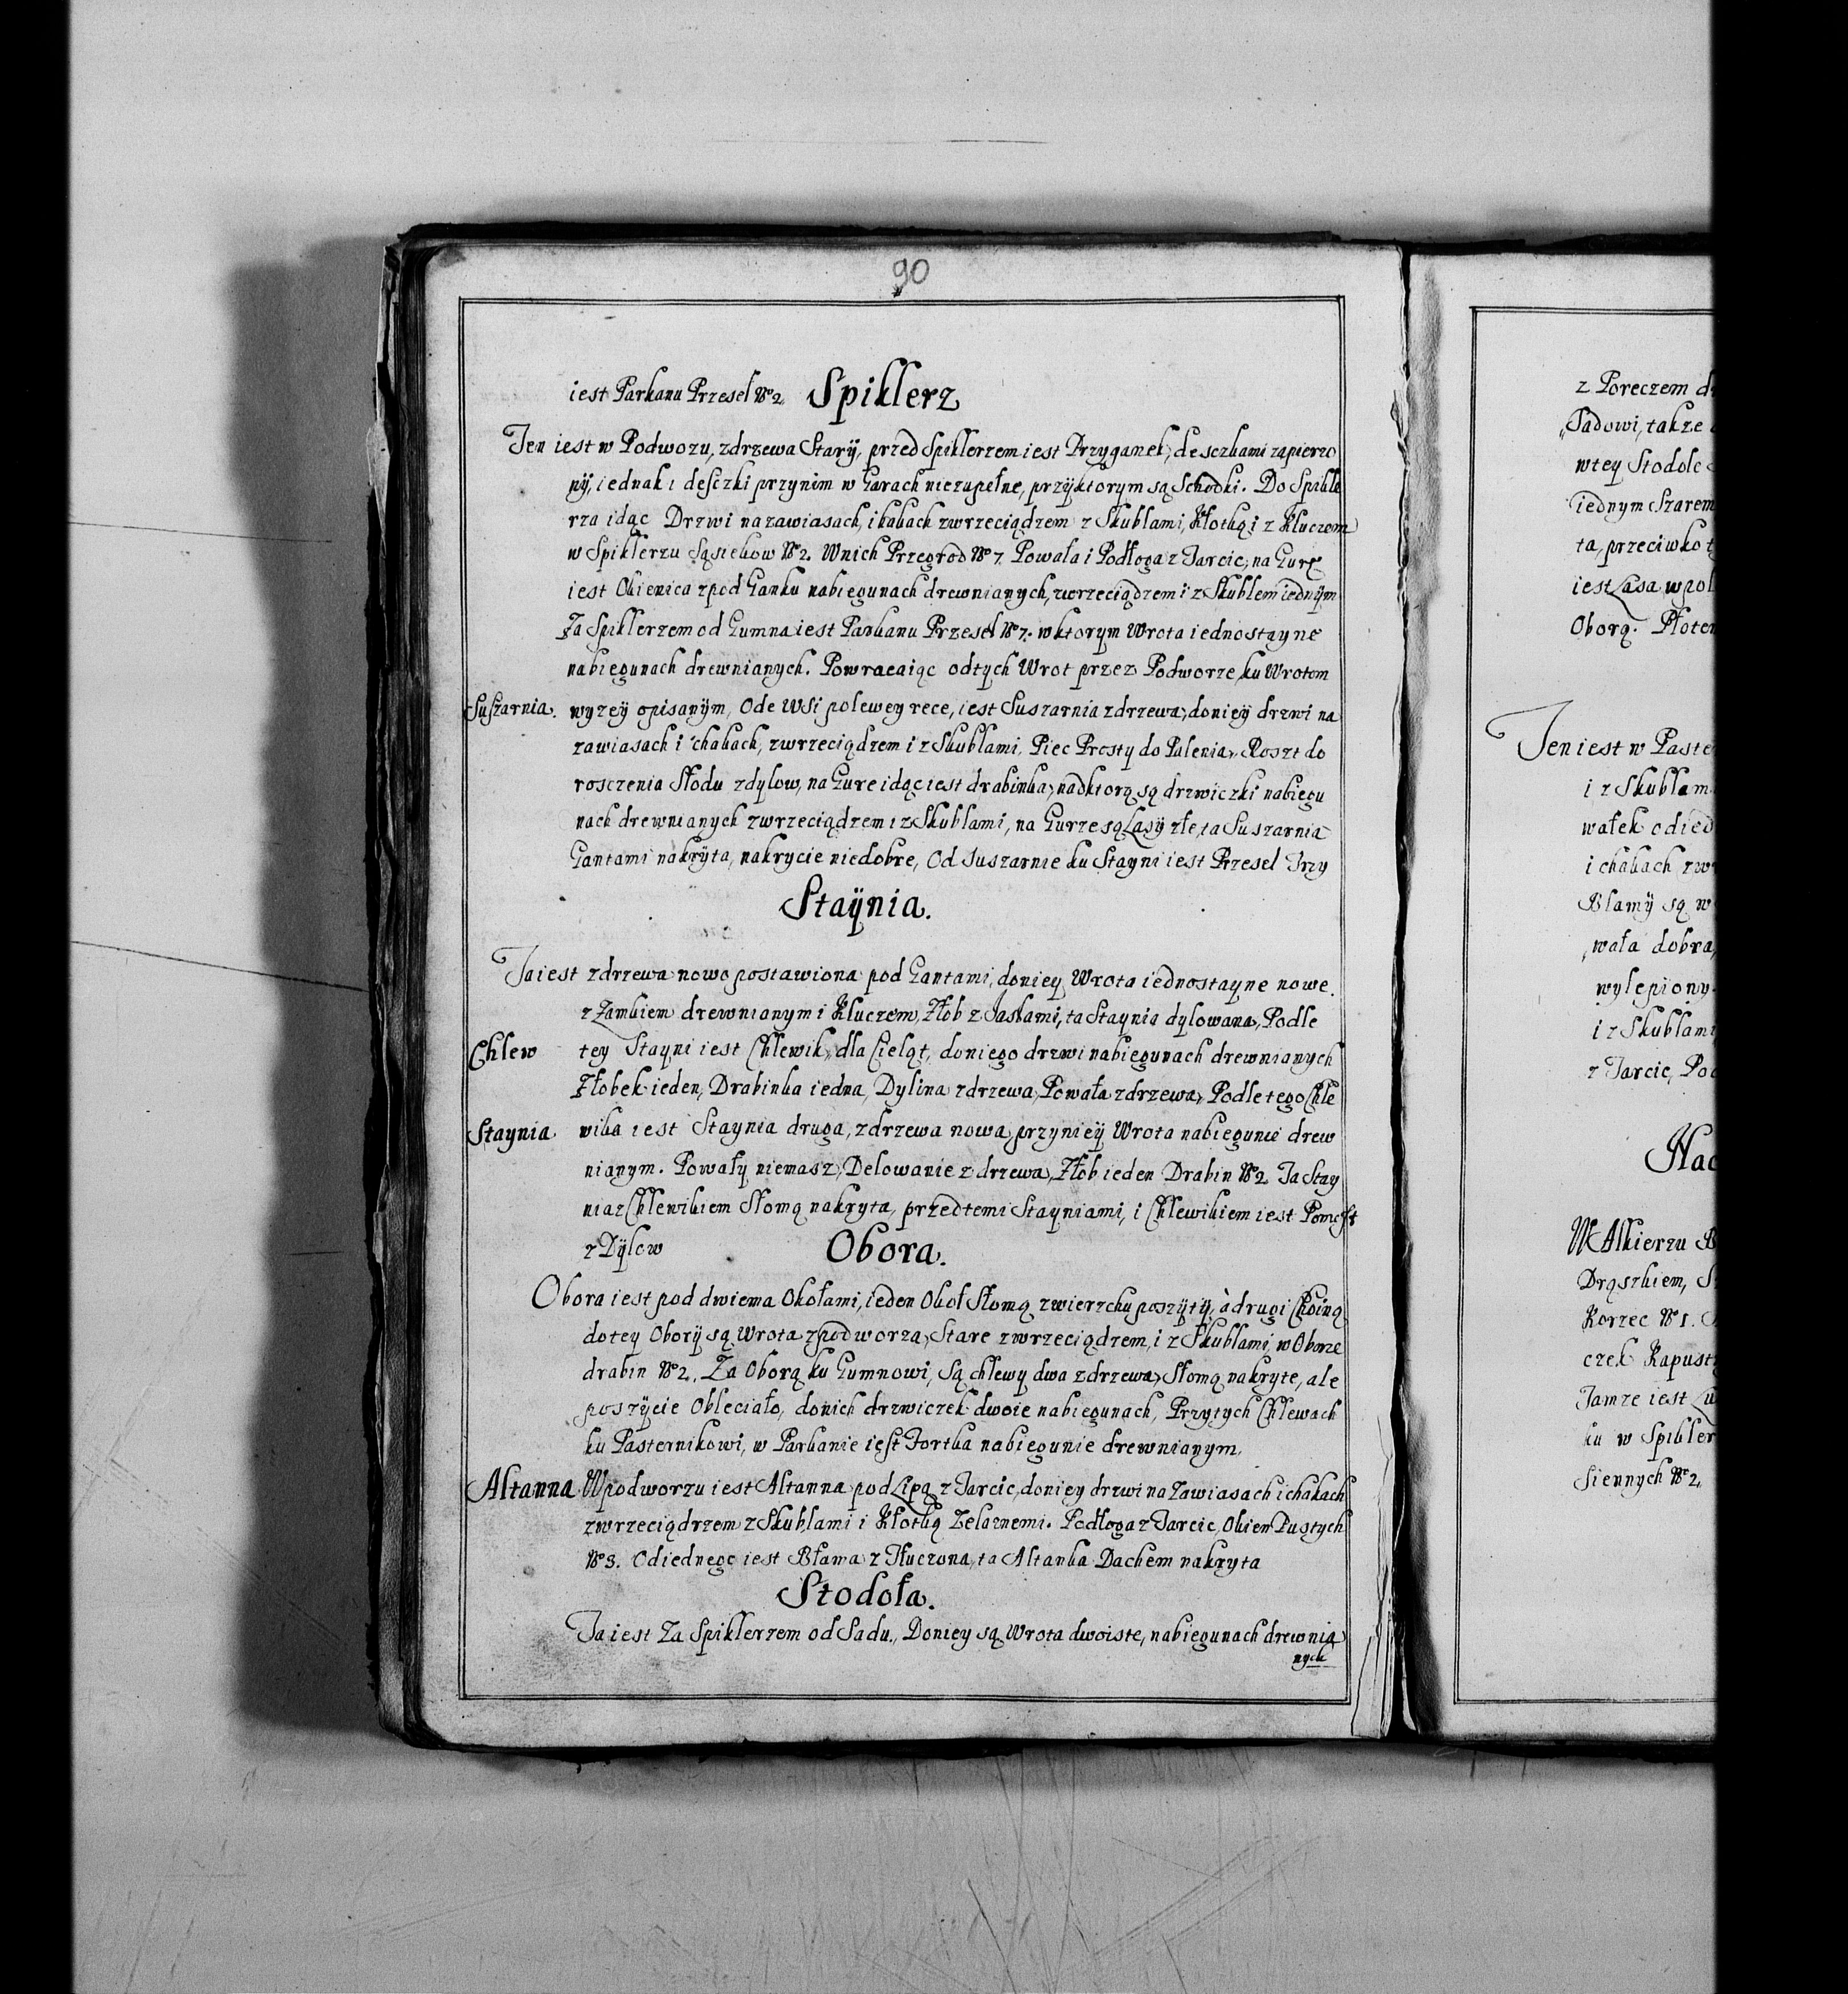 90
iest Parkanu Przeseł Nº 2. Spiklerz
Ten iest w Podwozu, zdrzewa Starÿ, przed Spiklerzem iest Przyganek, desczkami zapierzo
nÿ, iednak i desczki przynim w Garach niezupełne, przÿktorym są Schodki. Do Spikle
rza idąc Drzwi nazawiasach, ihakach zwrzeciądzem z Skublami, Kłotką i z Kluczem
w Spiklerzu Sąsiekow Nº 2. Wnich Przegrod Nº 7. Powała i Podłoga z Tarcic, na Gurę
iest Okienica zpod Ganku nabiegunach drewnianych, zwrzeciądzem i z Skublem iednÿm
Za Spiklerzem od Gumna iest Parkanu Przeseł Nº 7. wktorym Wrota iednostayne
nabiegunach drewnianych. Powracaiąc odtych Wrot przez Podworze ku Wrotom
Suszarnia. wyzeÿ opisanÿm, Ode Wsi polewey rece, iest Suszarnia zdrzewa, donieÿ drzwi na
zawiasach i hakach, zwrzeciądzem i z Skublami, Piec Prosty do Palenia, Roszt do
rosczenia Słodu zdylow, na Gure idąc iest drabinka, nadktorą są drzwiczki nabiegu
nach drewnianych zwrzeciądzem i z Skublami, na Gurze są Lasÿ złe, ta Suszarnia
Gantami nakrÿta, nakrycie niedobre, Od suszarnie ku Stayni iest Przeseł Trzy
Staÿnia.
Ta iest zdrzewa nowo postawiona pod Gantami, doniey Wrota iednostayne nowe.
z Zamkiem drewnianym i Kluczem, Złob z Jasłami, ta Staynia dylowana, Podle
Chlew tey Stayni iest Chlewik, dla Cieląt, doniego drzwi nabiegunach drewnianych
Złobek ieden, Drabinka iedna, Dylina zdrzewa, Powała zdrzewa, Podle tego Chle
Staynia wika iest Staynia druga, zdrzewa nowa, przynieÿ Wrota nabiegunie drew
nianym. Powały niemasz, Delowanie z drzewa, Złob ieden Drabin Nº 2. Ta Stay
nia z Chlewikiem Słomą nakryta, przedtemi Stayniami, i Chlewikiem iest Pomost
z Dÿlow Obora.
Obora iest pod dwiema Okołami, ieden Okoł Słomą zwierzchu poszÿtÿ, à drugi Choiną
dotey Oborÿ są Wrota zpodworza, Stare zwrzeciądzem, i z Skublami, w Oborze
drabin Nº 2. Za Oborą ku Gumnowi, Są chlewy dwa zdrzewa, Słomą nakryte, ale
poszÿcie Obleciało, donich drzwiczek dwoie nabiegunach, Przytych Chlewach
ku Pasternikowi, w Parkanie iest Fortka nabiegunie drewnianym.
Altanna Wpodworzu iest Altanna pod Lipą z Tarcic, doniey drzwi na Zawiasach ichakach
zwrzeciądzem z Skublami i Kłotką Zelaznemi. Podłoga z Tarcic, Okien Pustych
Nº 3. Odiednego iest Błama z Tłuczona, ta Altanka Dachem nakryta
Stodoła.
Ta iest Za Spiklerzem od Sadu, Doniey są Wrota dwoiste, nabiegunach drewnia
nych
z Poreczem
Sadowi, takze
wtey Stodole
iednym Szarem
ta, przeciwko
iest Lasa wpol
Oborą. Płoten
Ten iest w Paste
i z Skublam
wałek odied
i chakach zw
Blamÿ są w
wała dobra,
wylepiony
i z Skublami
z Tarcic, Pod
Nac
W Alkierzu B
Drąszkiem, S
Korzec Nº 1.
czek Kapust
Tamze iest Lu
ku w Spikler
Siennych Nº 2.